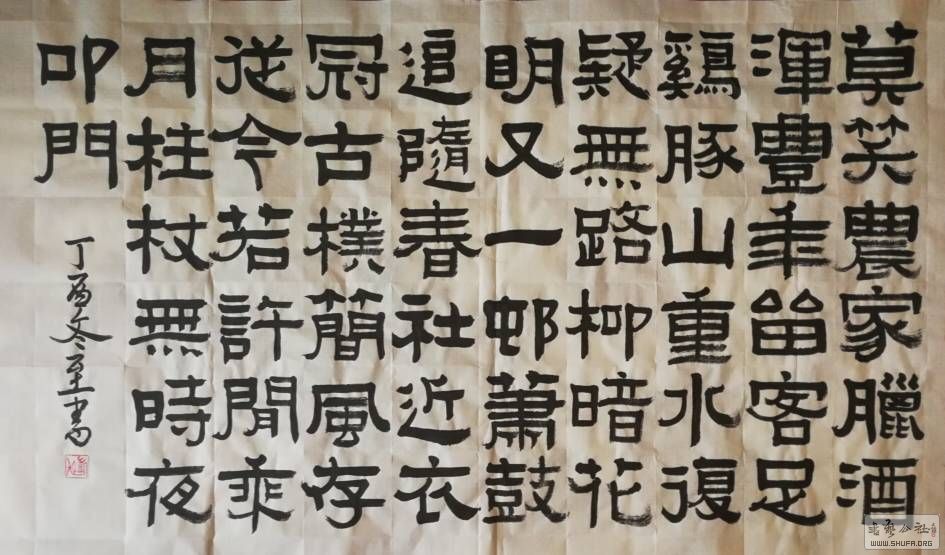 莫笑農家臘酒
渾豐年留客足
鷄豚山重水復
疑無路柳暗花
明又一邨蕭鼓
追隨春社近衣
冠古樸簡風存
從今若許閒乘
月柱杖無時夜
叩門
丁酉冬至書
书艺公社
WWW.SHUFA.ORG